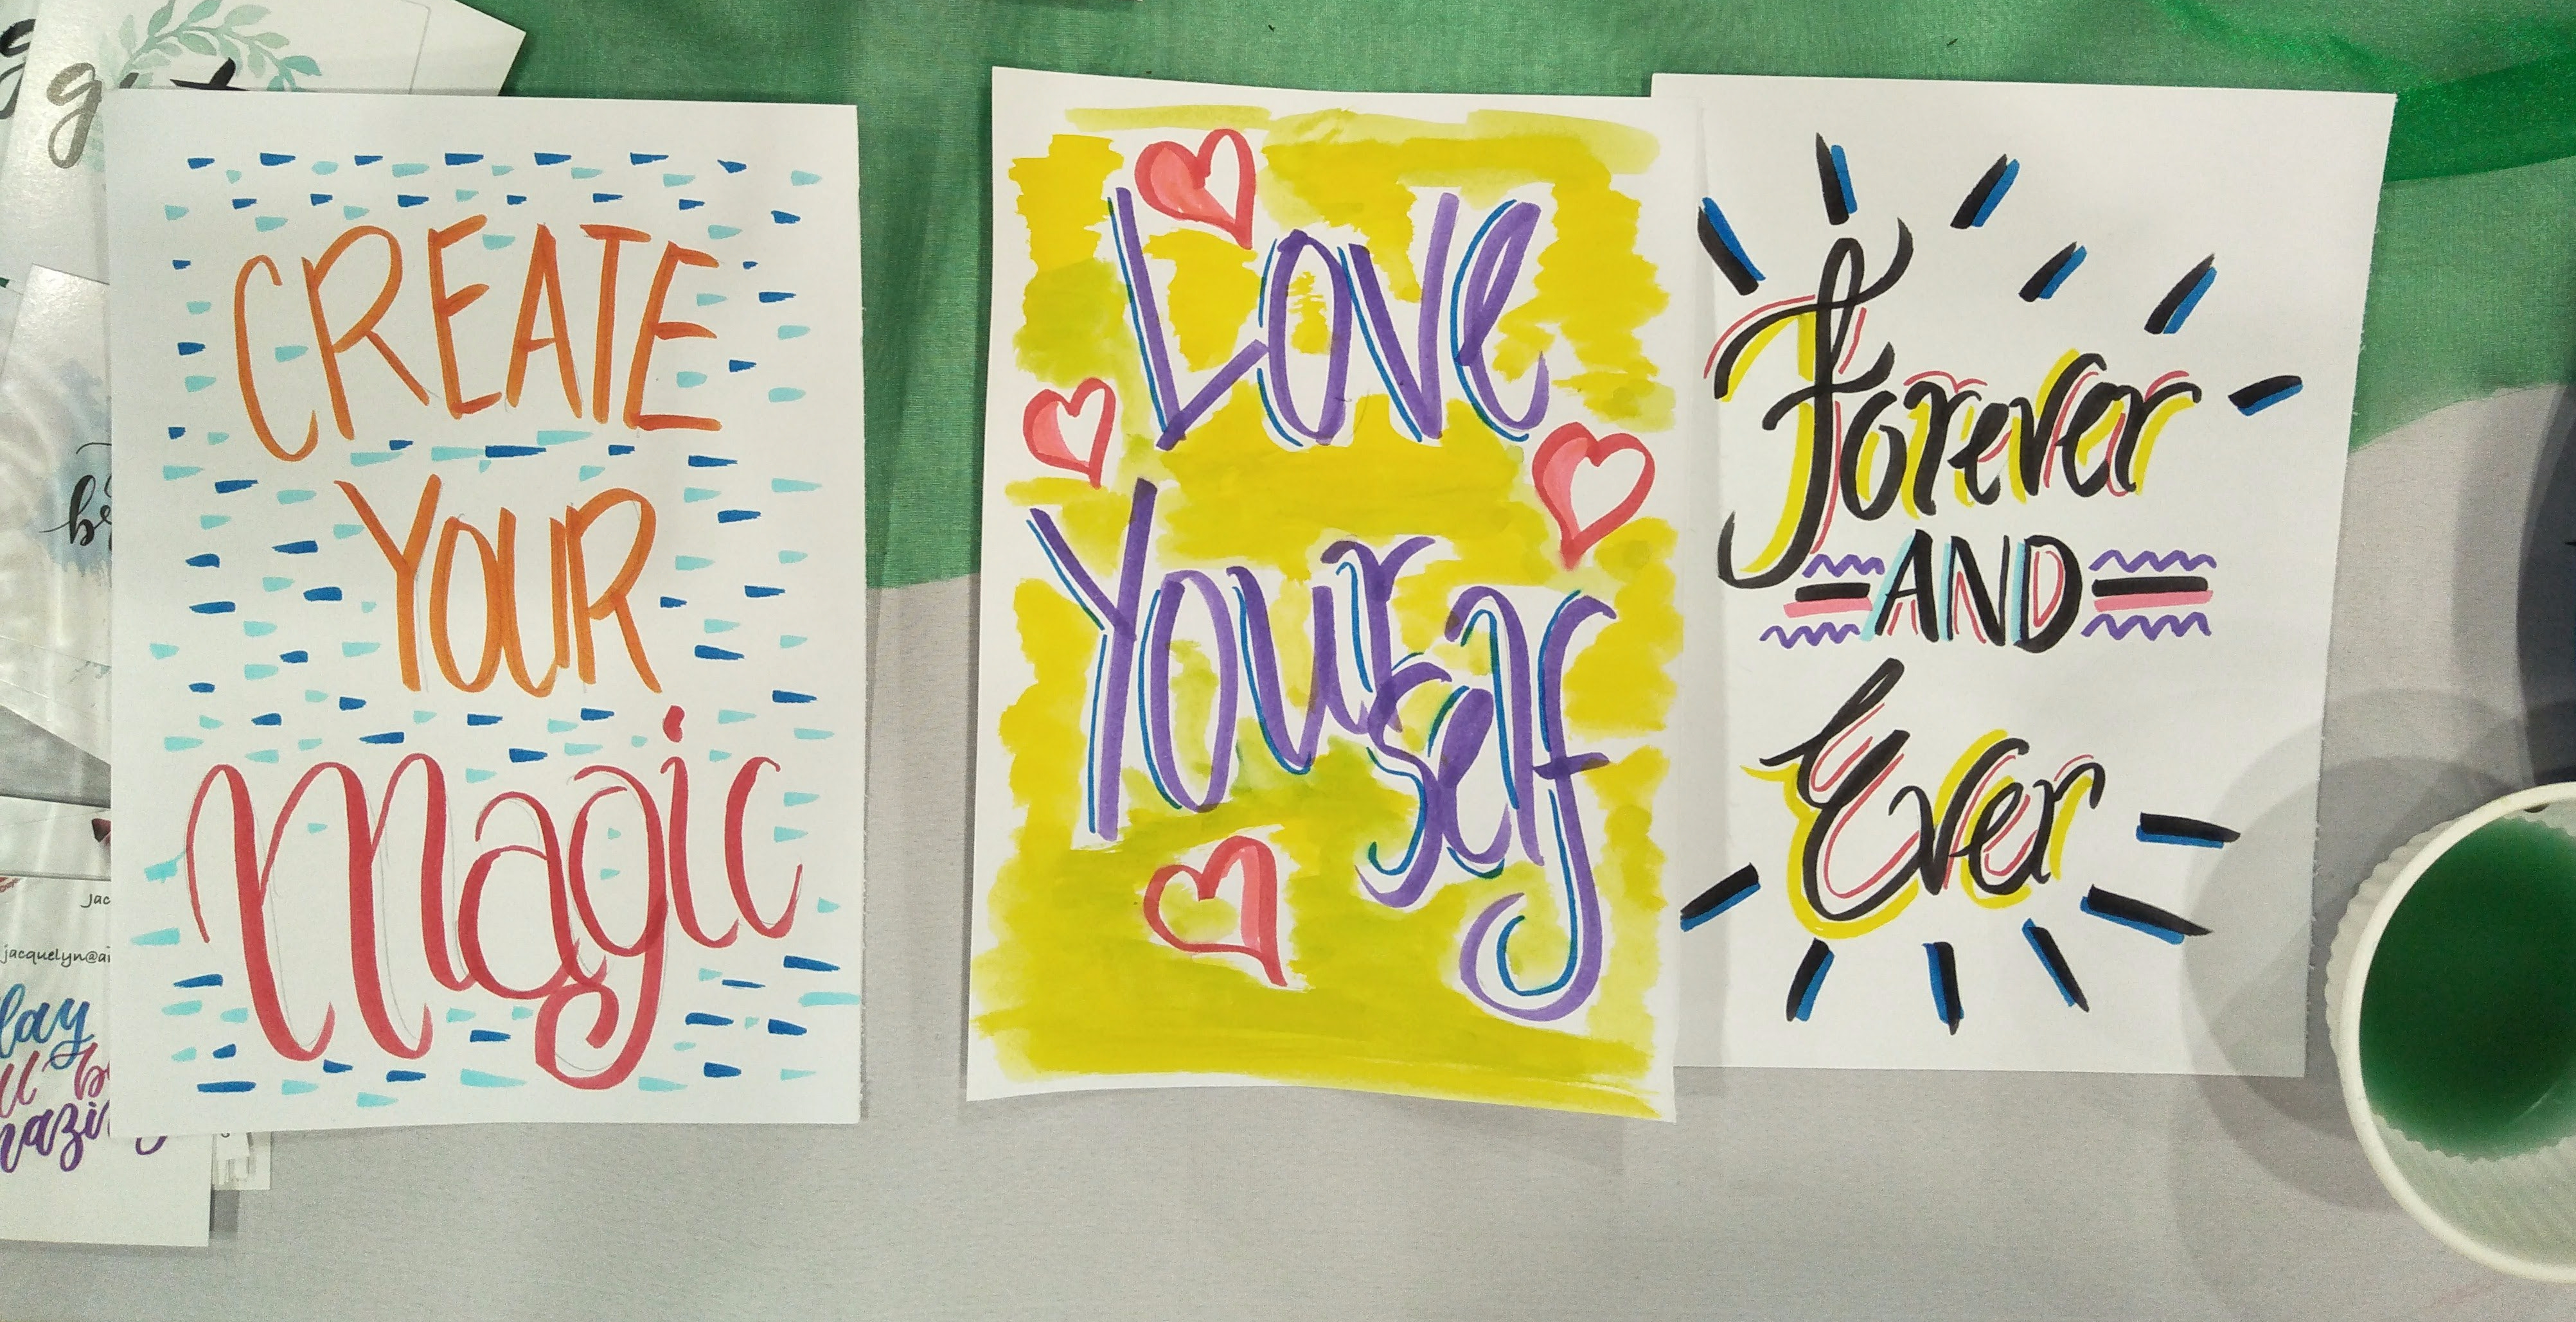 CREATE
YOUR
Magic
Love
Yourself
Forever
AND
Ever
jac
jacquelyn@ai